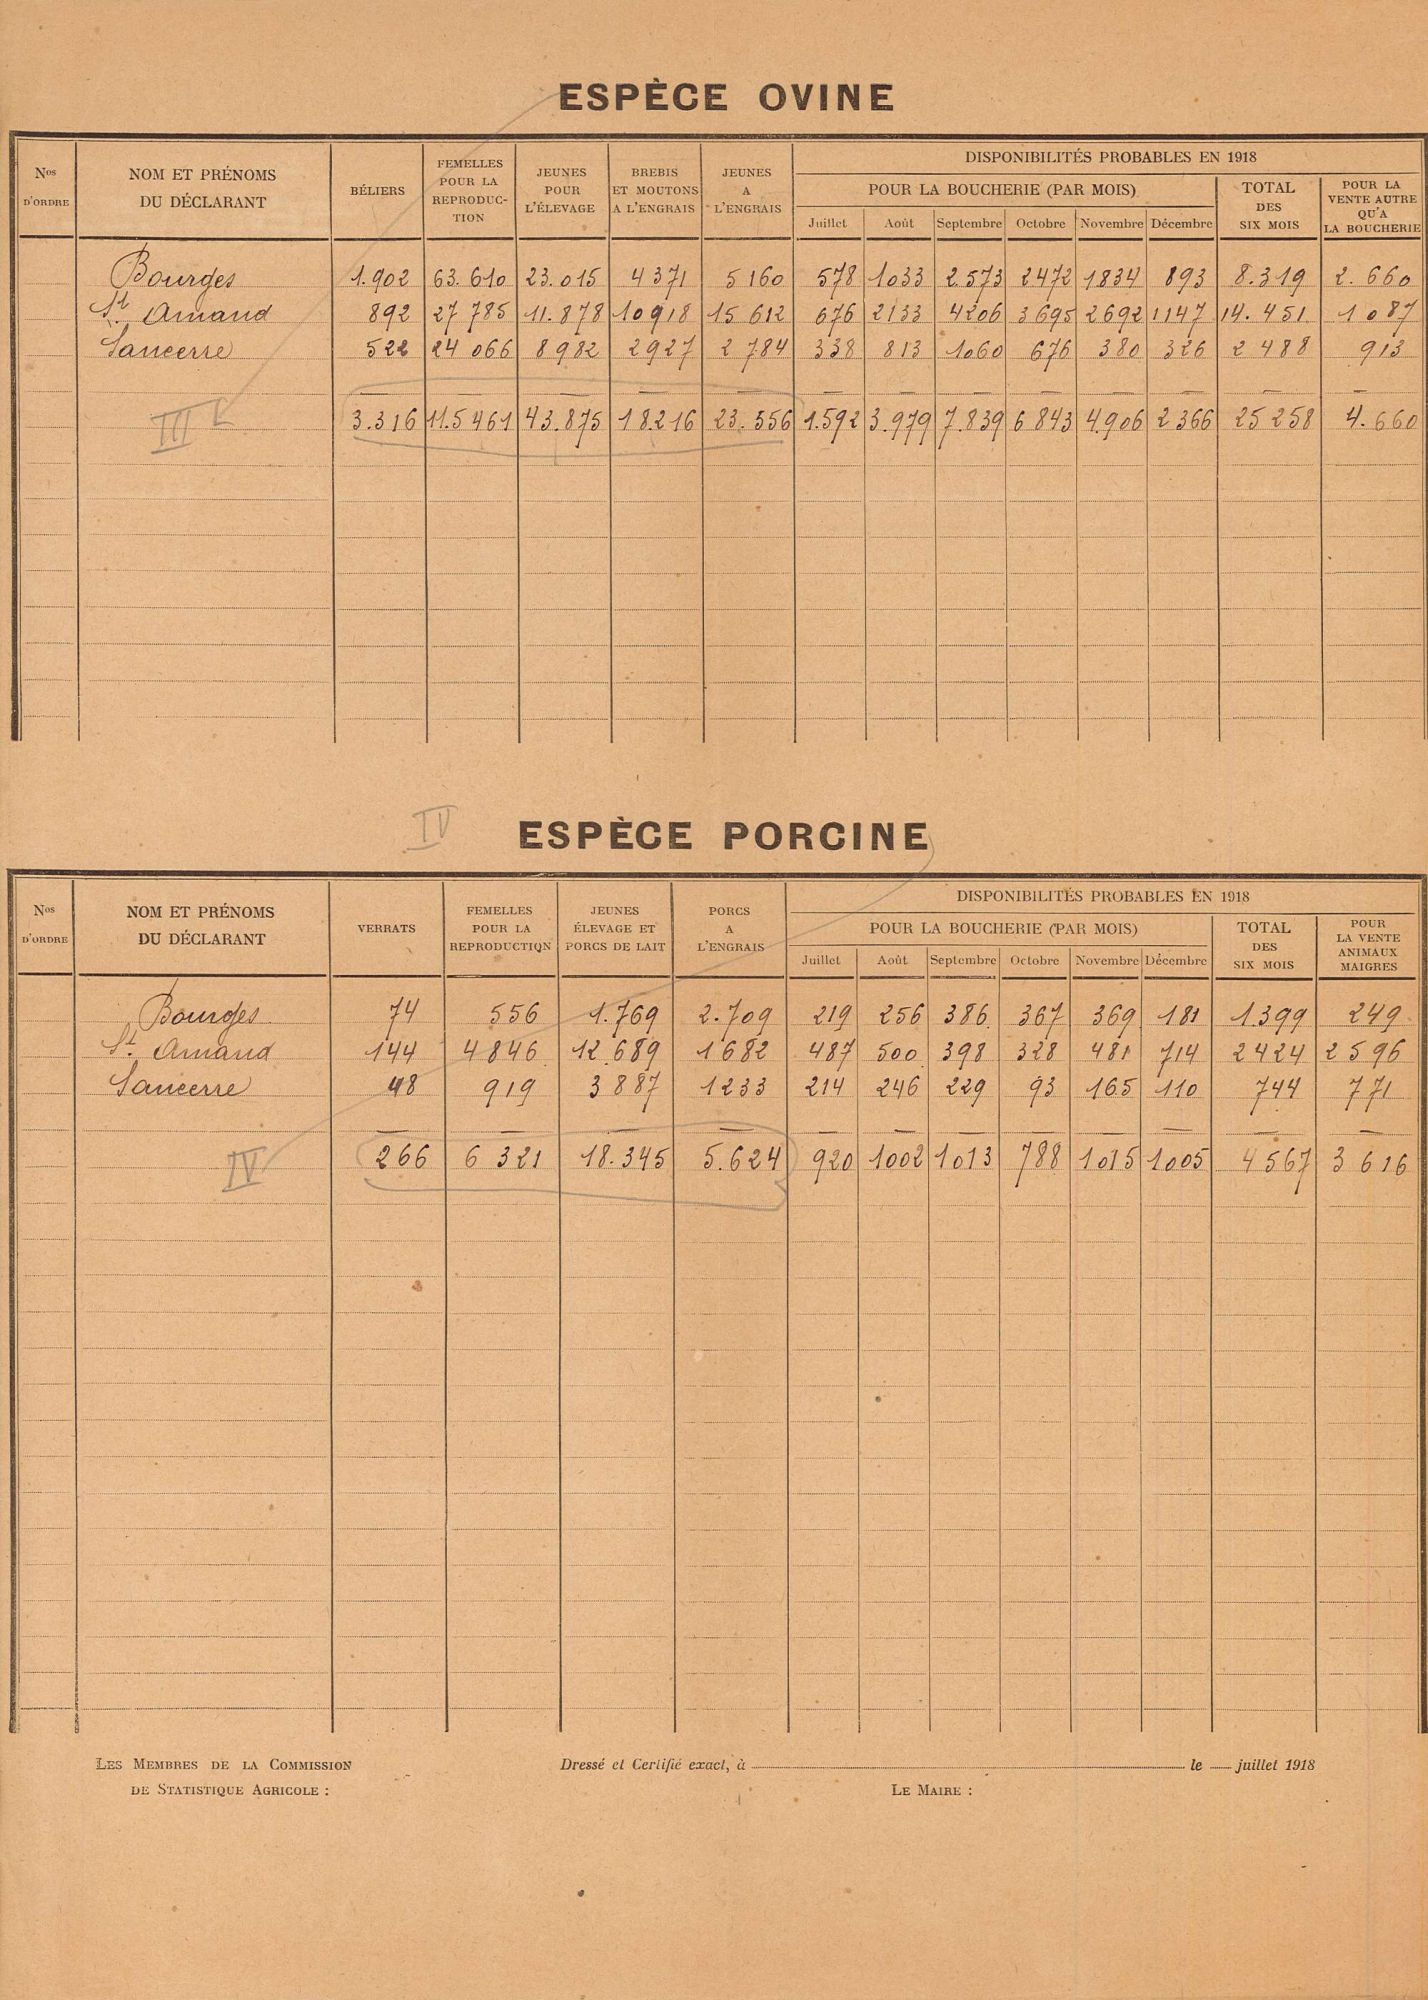 ESPÈCE OVINE
Nos D'ORDRE
NOM ET PRÉNOMS DU DÉCLARANT
BÉLIERS
FEMELLES POUR LA REPRODUC-TION
JEUNES POUR L'ÉLEVAGE
BREBIS ET MOUTONS A L'ENGRAIS
JEUNES A L'ENGRAIS
DISPONIBILITÉS PROBABLES EN 1918
POUR LA BOUCHERIE (PAR MOIS)
Juillet Août Septembre Octobre Novembre Décembre
TOTAL DES SIX MOIS
POUR LA VENTE AUTRE QU'A LA BOUCHERIE
Bourges 1.902 63.610 23.015 4371 5160 578 1033 2.573 2472 1834 893 8.319 2.660
St Amand 892 27785 11.878 10918 15612 676 2133 4206 3695 2692 1147 14.451 1087
Sancerre 522 24066 8982 2927 2784 338 813 1060 676 380 326 2488 913
III 3.316 115461 43.875 18216 23.556 1.592 3.979 7.839 6843 4.906 2366 25258 4.660
IV
ESPÈCE PORCINE
Nos D'ORDRE
NOM ET PRÉNOMS DU DÉCLARANT
VERRATS
FEMELLES POUR LA REPRODUCTION
JEUNES ÉLEVAGE ET PORCS DE LAIT
PORCS A L'ENGRAIS
DISPONIBILITÉS PROBABLES EN 1918
POUR LA BOUCHERIE (PAR MOIS)
Juillet Août Septembre Octobre Novembre Décembre
TOTAL DES SIX MOIS
POUR LA VENTE ANIMAUX MAIGRES
Bourges 74 556 1.769 2.709 219 256 386 367 369 181 1.399 249
St Amand 144 4846 12689 1682 487 500 398 328 481 714 2424 2596
Sancerre 48 919 3887 1233 214 246 229 93 165 110 744 771
IV 266 6321 18.345 5.624 920 1002 1013 788 1015 1005 4567 3616
LES MEMBRES DE LA COMMISSION DE STATISTIQUE AGRICOLE :
Dressé et Certifié exact, à le juillet 1918
LE MAIRE :